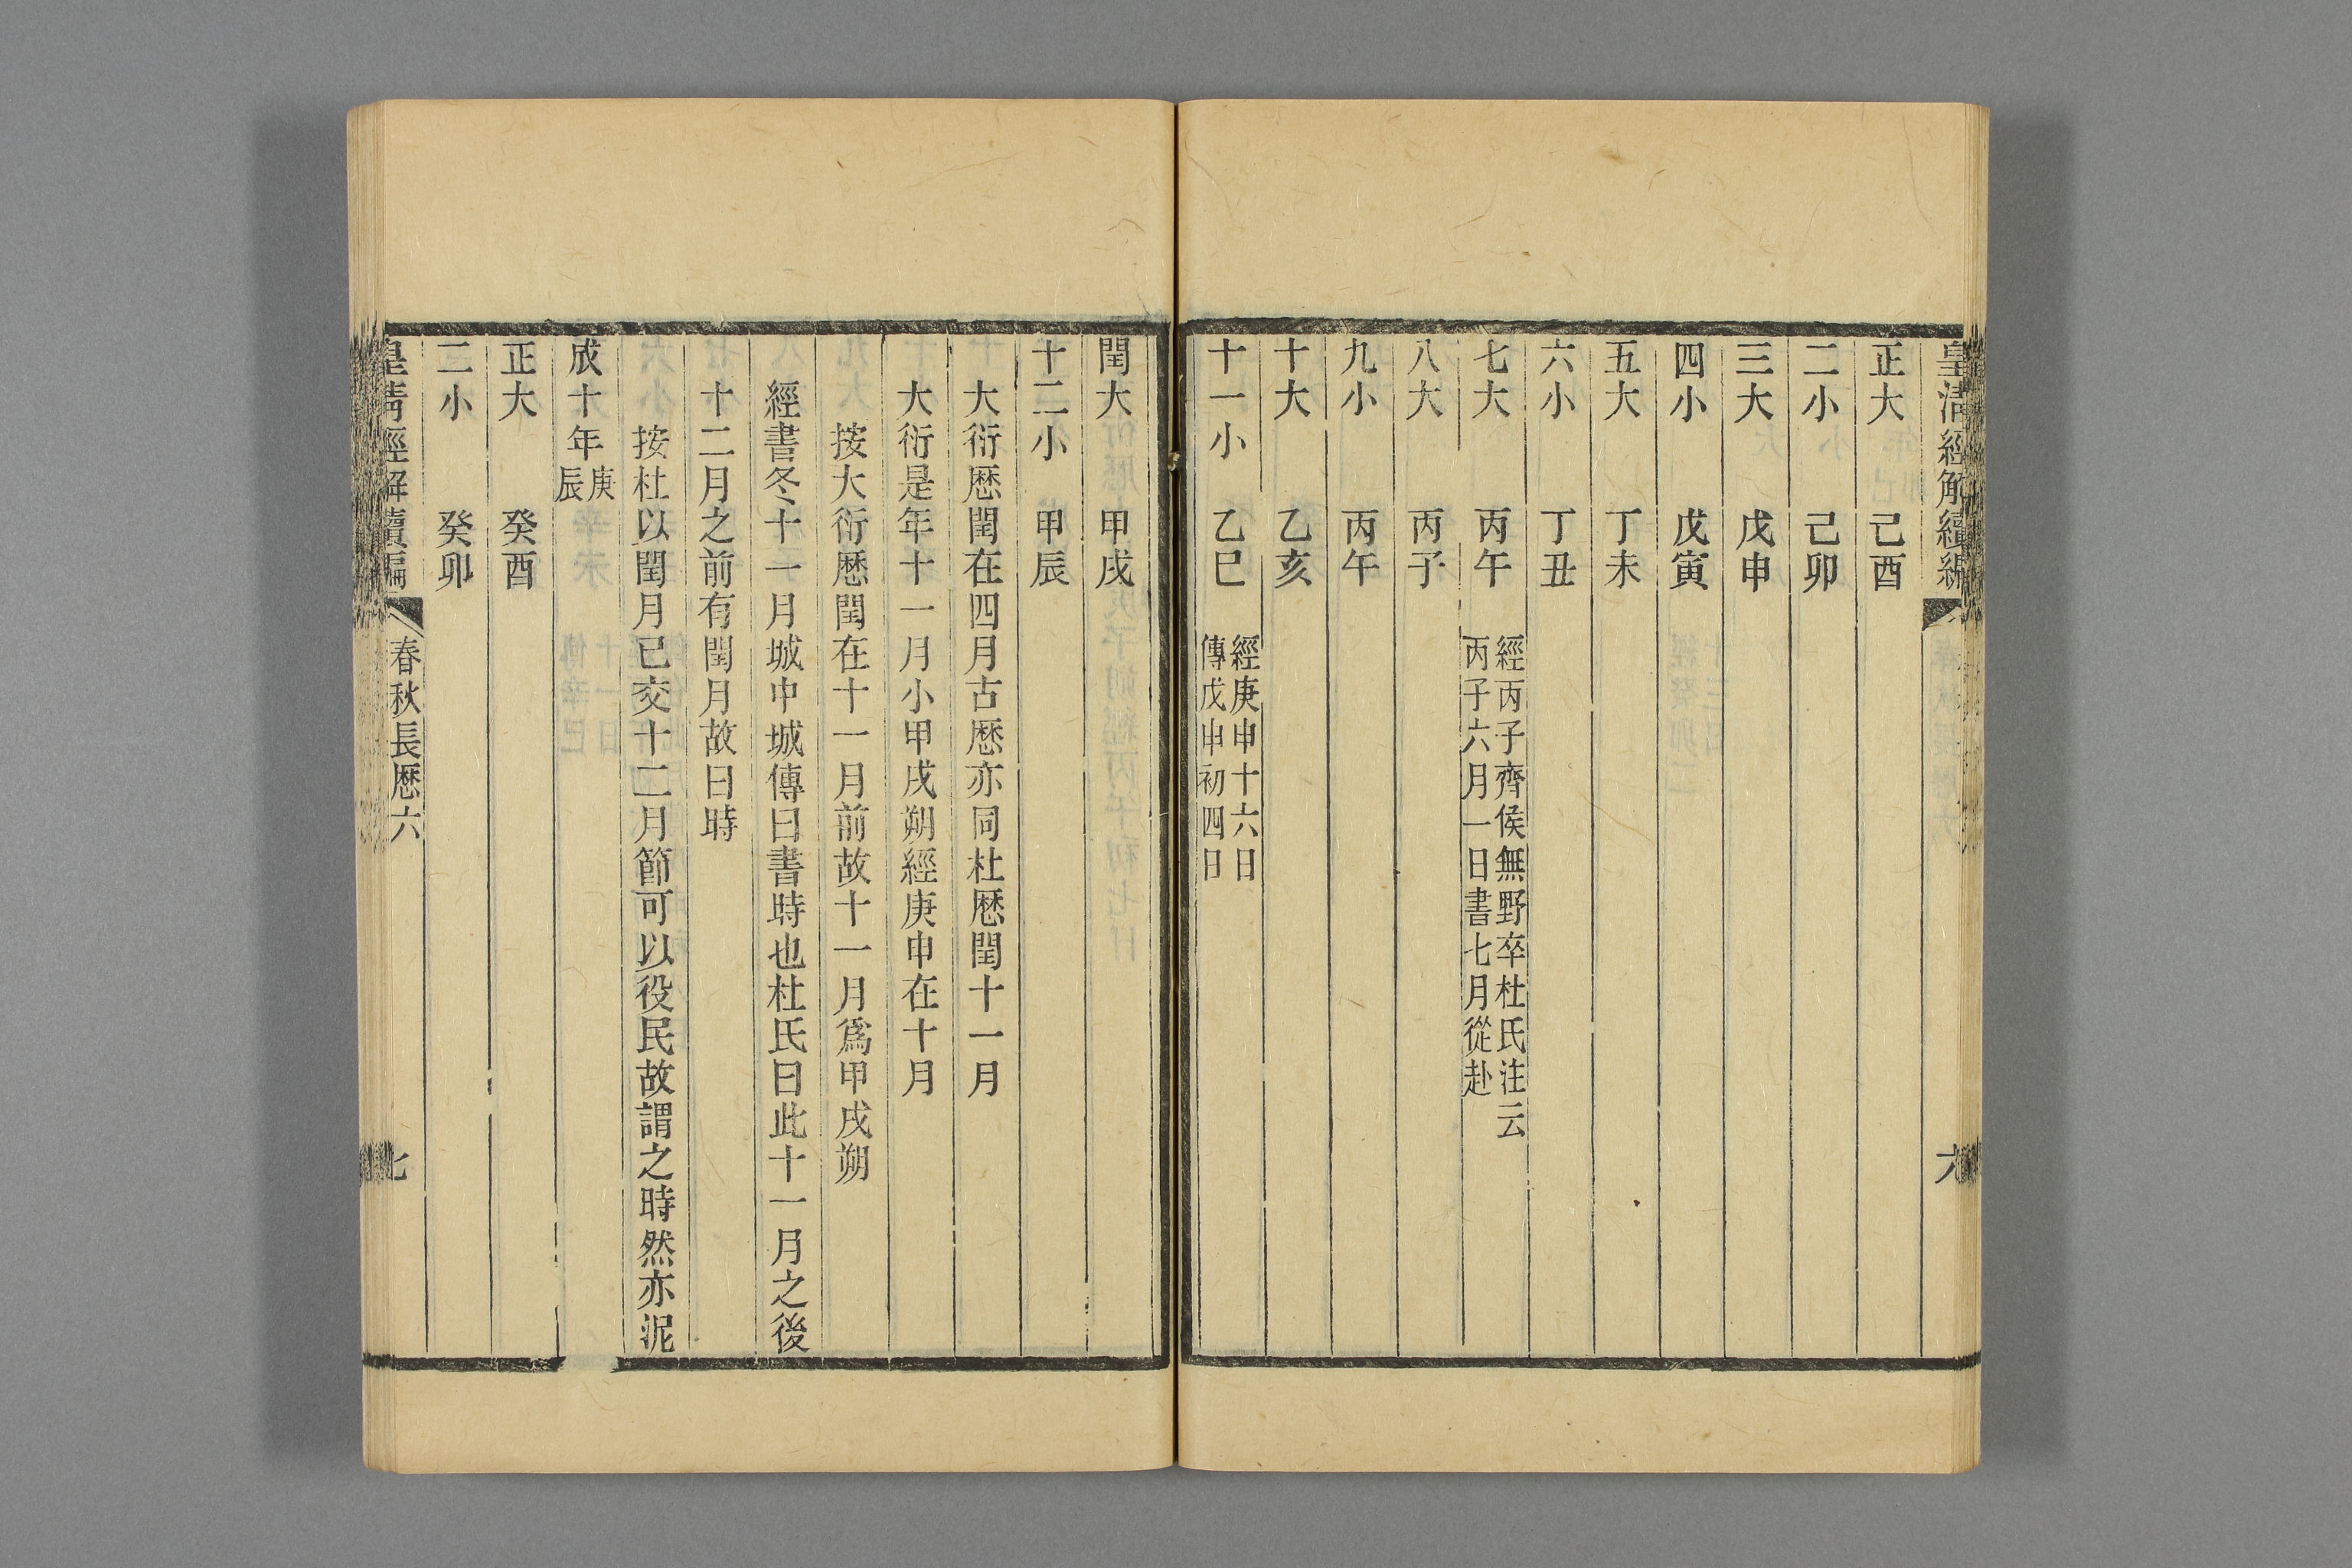 皇清經解續編
六
正大 己酉
二小 己卯
三大 戊申
四小 戊寅
五大 丁未
六小 丁丑
七大 丙午 經丙子齊侯無野卒杜氏注云
丙子六月一日書七月從赴
八大 丙子
九小 丙午
十大 乙亥
十一小 乙巳 經庚申十六日
傳戊申初四日
閏大 甲戌
十二小 甲辰
大衍厯閏在四月古厯亦同杜厯閏十一月
大衍是年十一月小甲戌朔經庚申在十月
按大衍厯閏在十一月前故十一月爲甲戌朔
經書冬十一月城中城傳曰書時也杜氏曰此十一月之後
十二月之前有閏月故曰時
按杜以閏月已交十二月節可以役民故謂之時然亦泥
成十年庚
辰
正大 癸酉
二小 癸卯
皇清經解續編
春秋長厯六
七